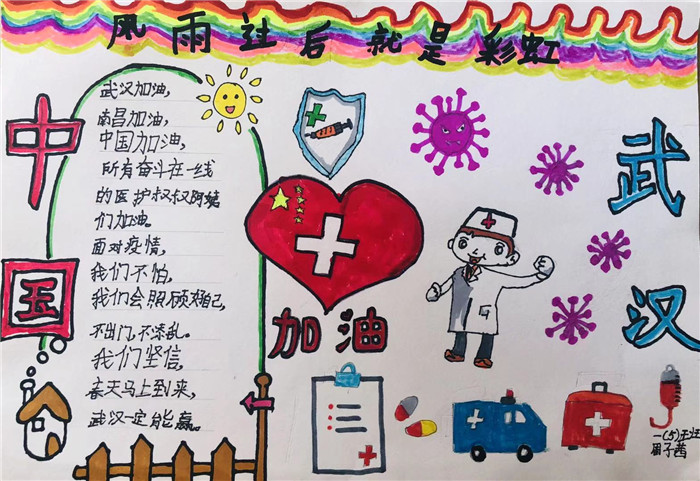 风雨过后就是彩虹
中国
武汉加油,
南昌加油,
中国加油,
所有奋斗在一线
的医护叔叔阿姨
们加油。
面对疫情,
我们不怕,
我们会照顾好自己,
不出门,不添乱。
我们坚信,
春天马上到来,
武汉一定能赢。
加油
武汉
一(5)
子茜